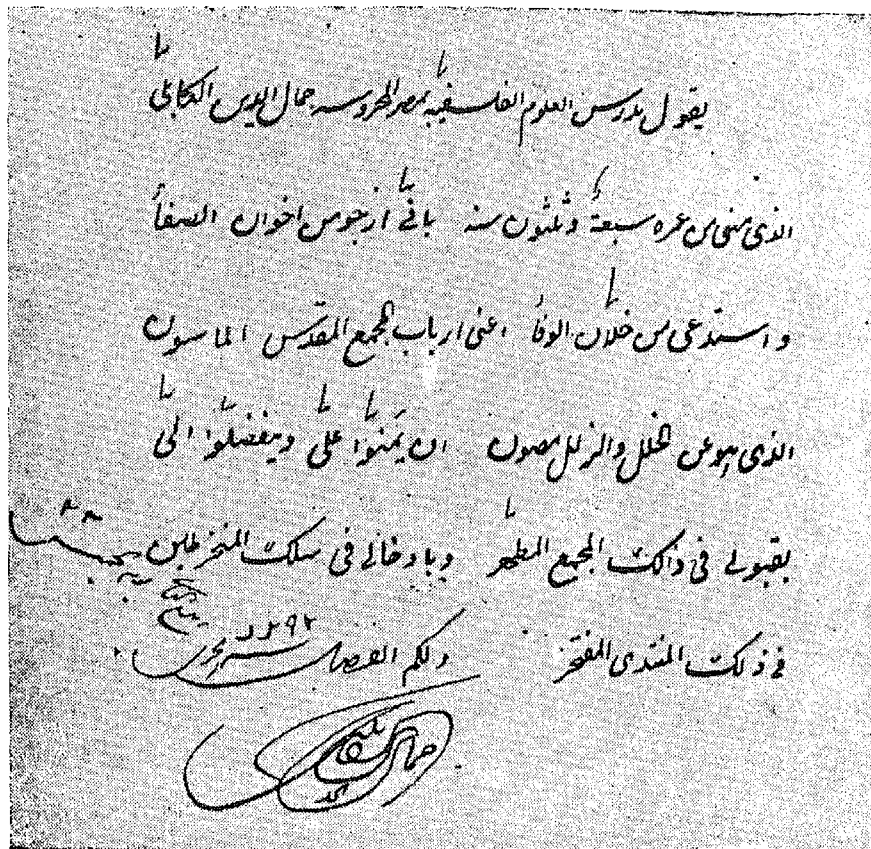 يقول مدرس العلوم الفلسفيه بمصر المحروسه جمال الدين الكابلى
الذى مضى من عمره سبعة وثلثون سنه بانى ارجو من اخوان الصفا
واستدعى من خلان الوفا اعنى ارباب المجمع المقدس الماسون
الذى هو عن الخلل والزلل مصون ان يمنوا على ويتفضلوا الى
بقبولى فى ذالك المجمع المطهر وبادخالى فى سلك المنخرطين
فى ذلك المنتدى المفتخر ولكم الفضل
٢٢
١٢٩٢
جمال الدين